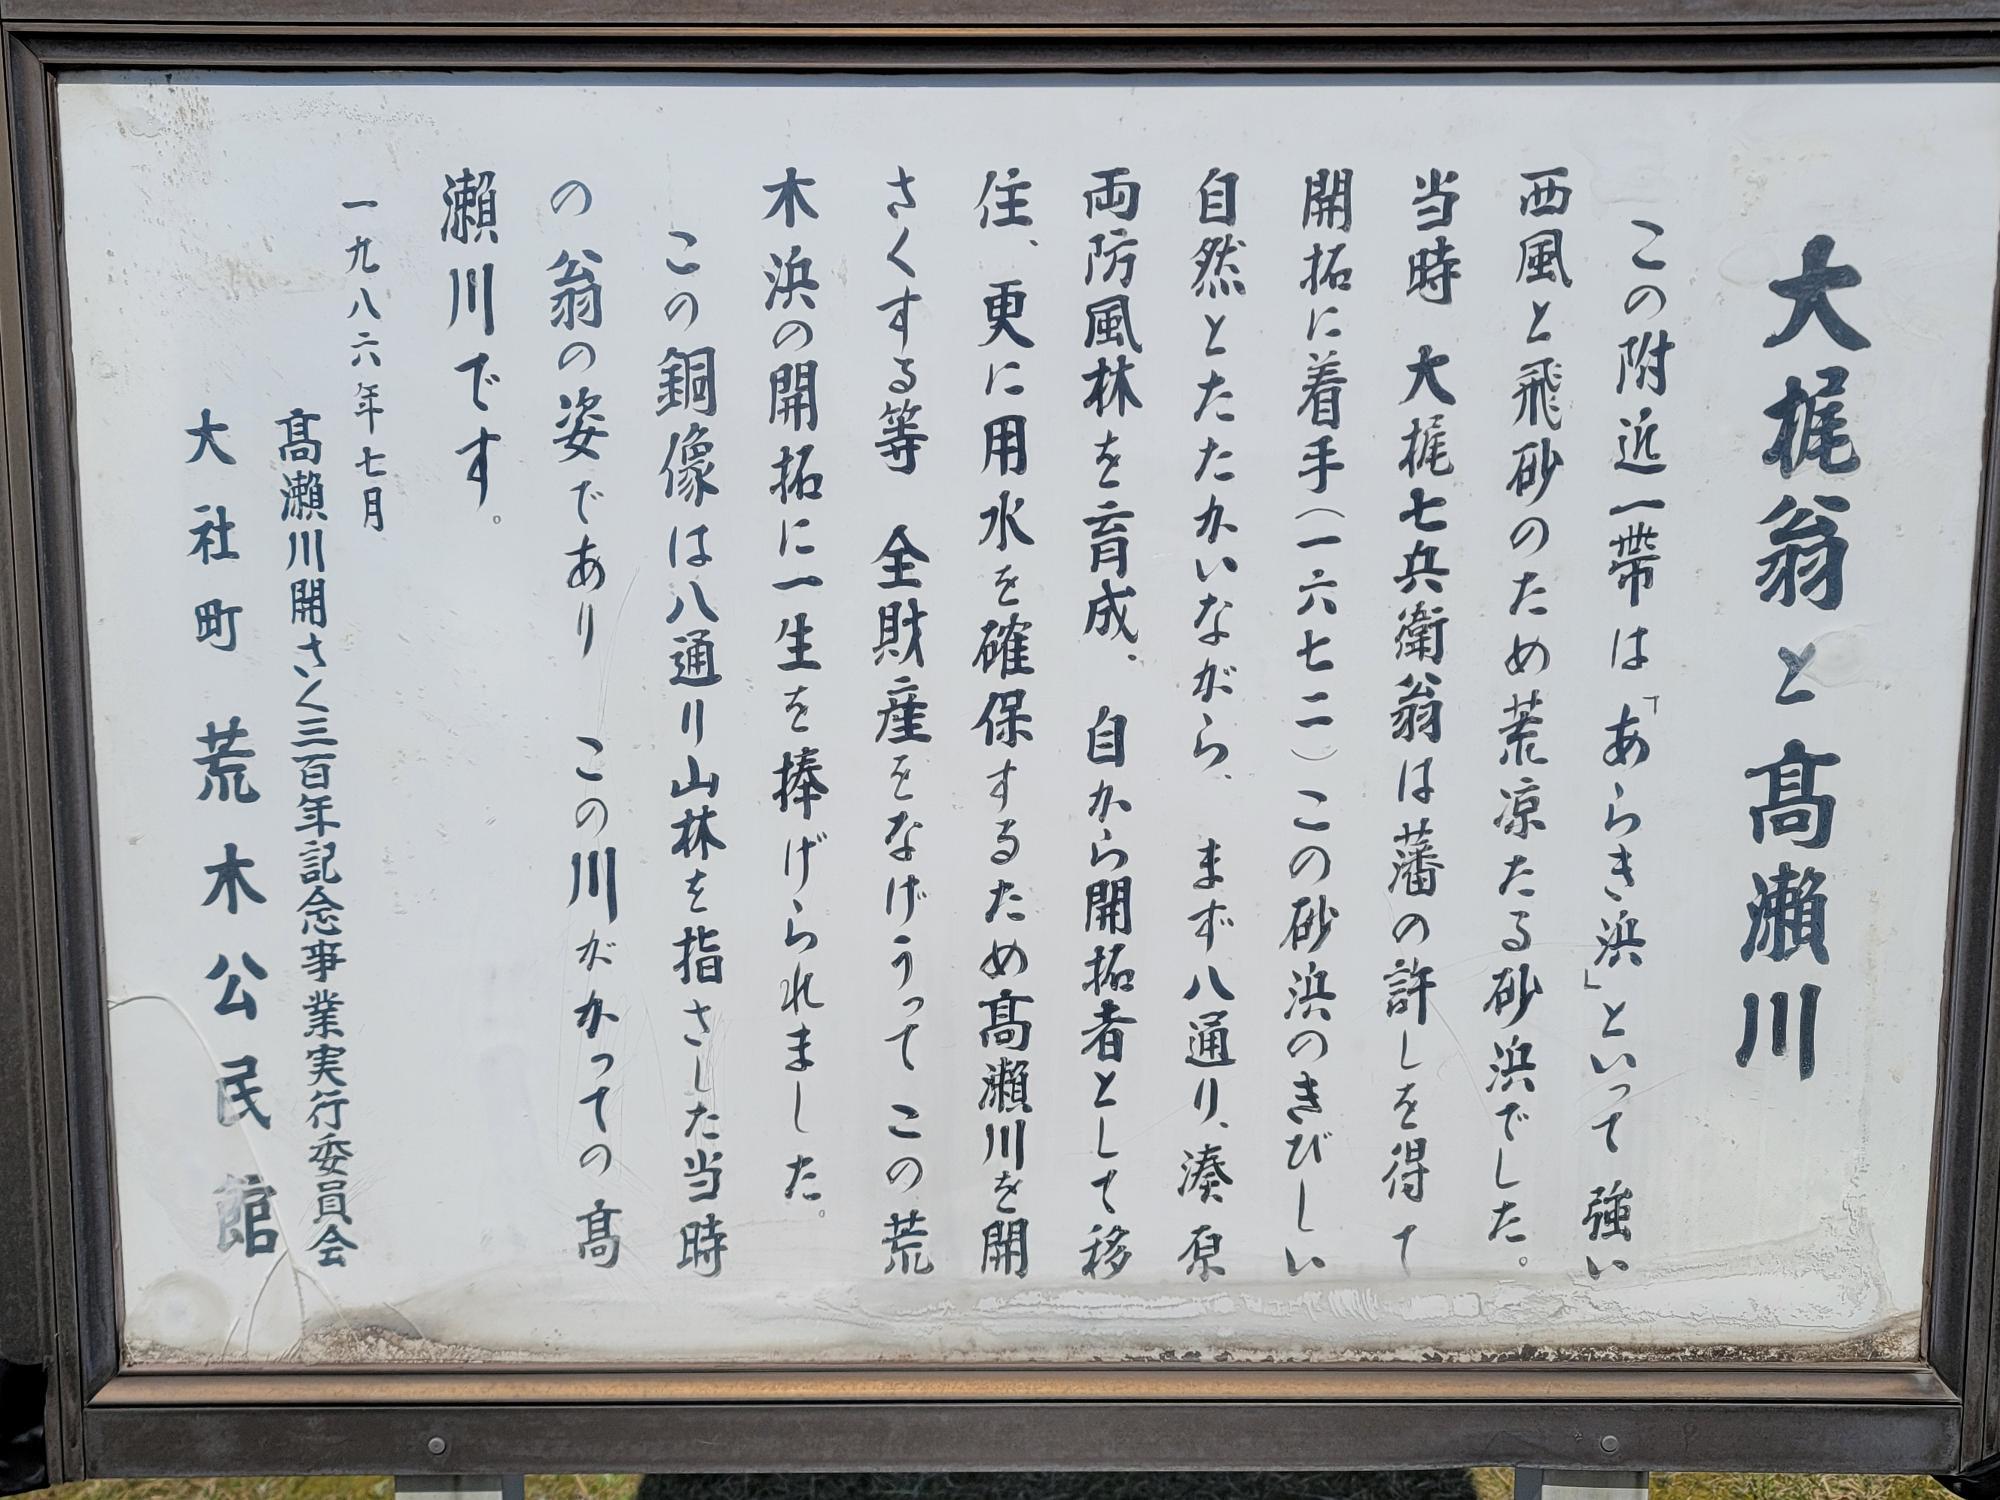 大梶翁と髙瀨川
この附近一帶は「あらき浜」といって 強い
西風と飛砂のため荒凉たる砂浜でした。
当時 大梶七兵衛翁は藩の許しを得て
開拓に着手(一六七二)この砂浜のきびしい
自然とたたかいながら、 まず八通り、湊原
両防風林を育成、 自から開拓者として移
住、更に用水を確保するため髙瀨川を開
さくする等 全財産をなげうって この荒
木浜の開拓に一生を捧げられました。
この銅像は八通り山林を指さした当時
の翁の姿であり この川がかっての髙
瀨川です。
一九八六年七月
髙瀨川開さく三百年記念事業実行委員会
大社町 荒木公民館